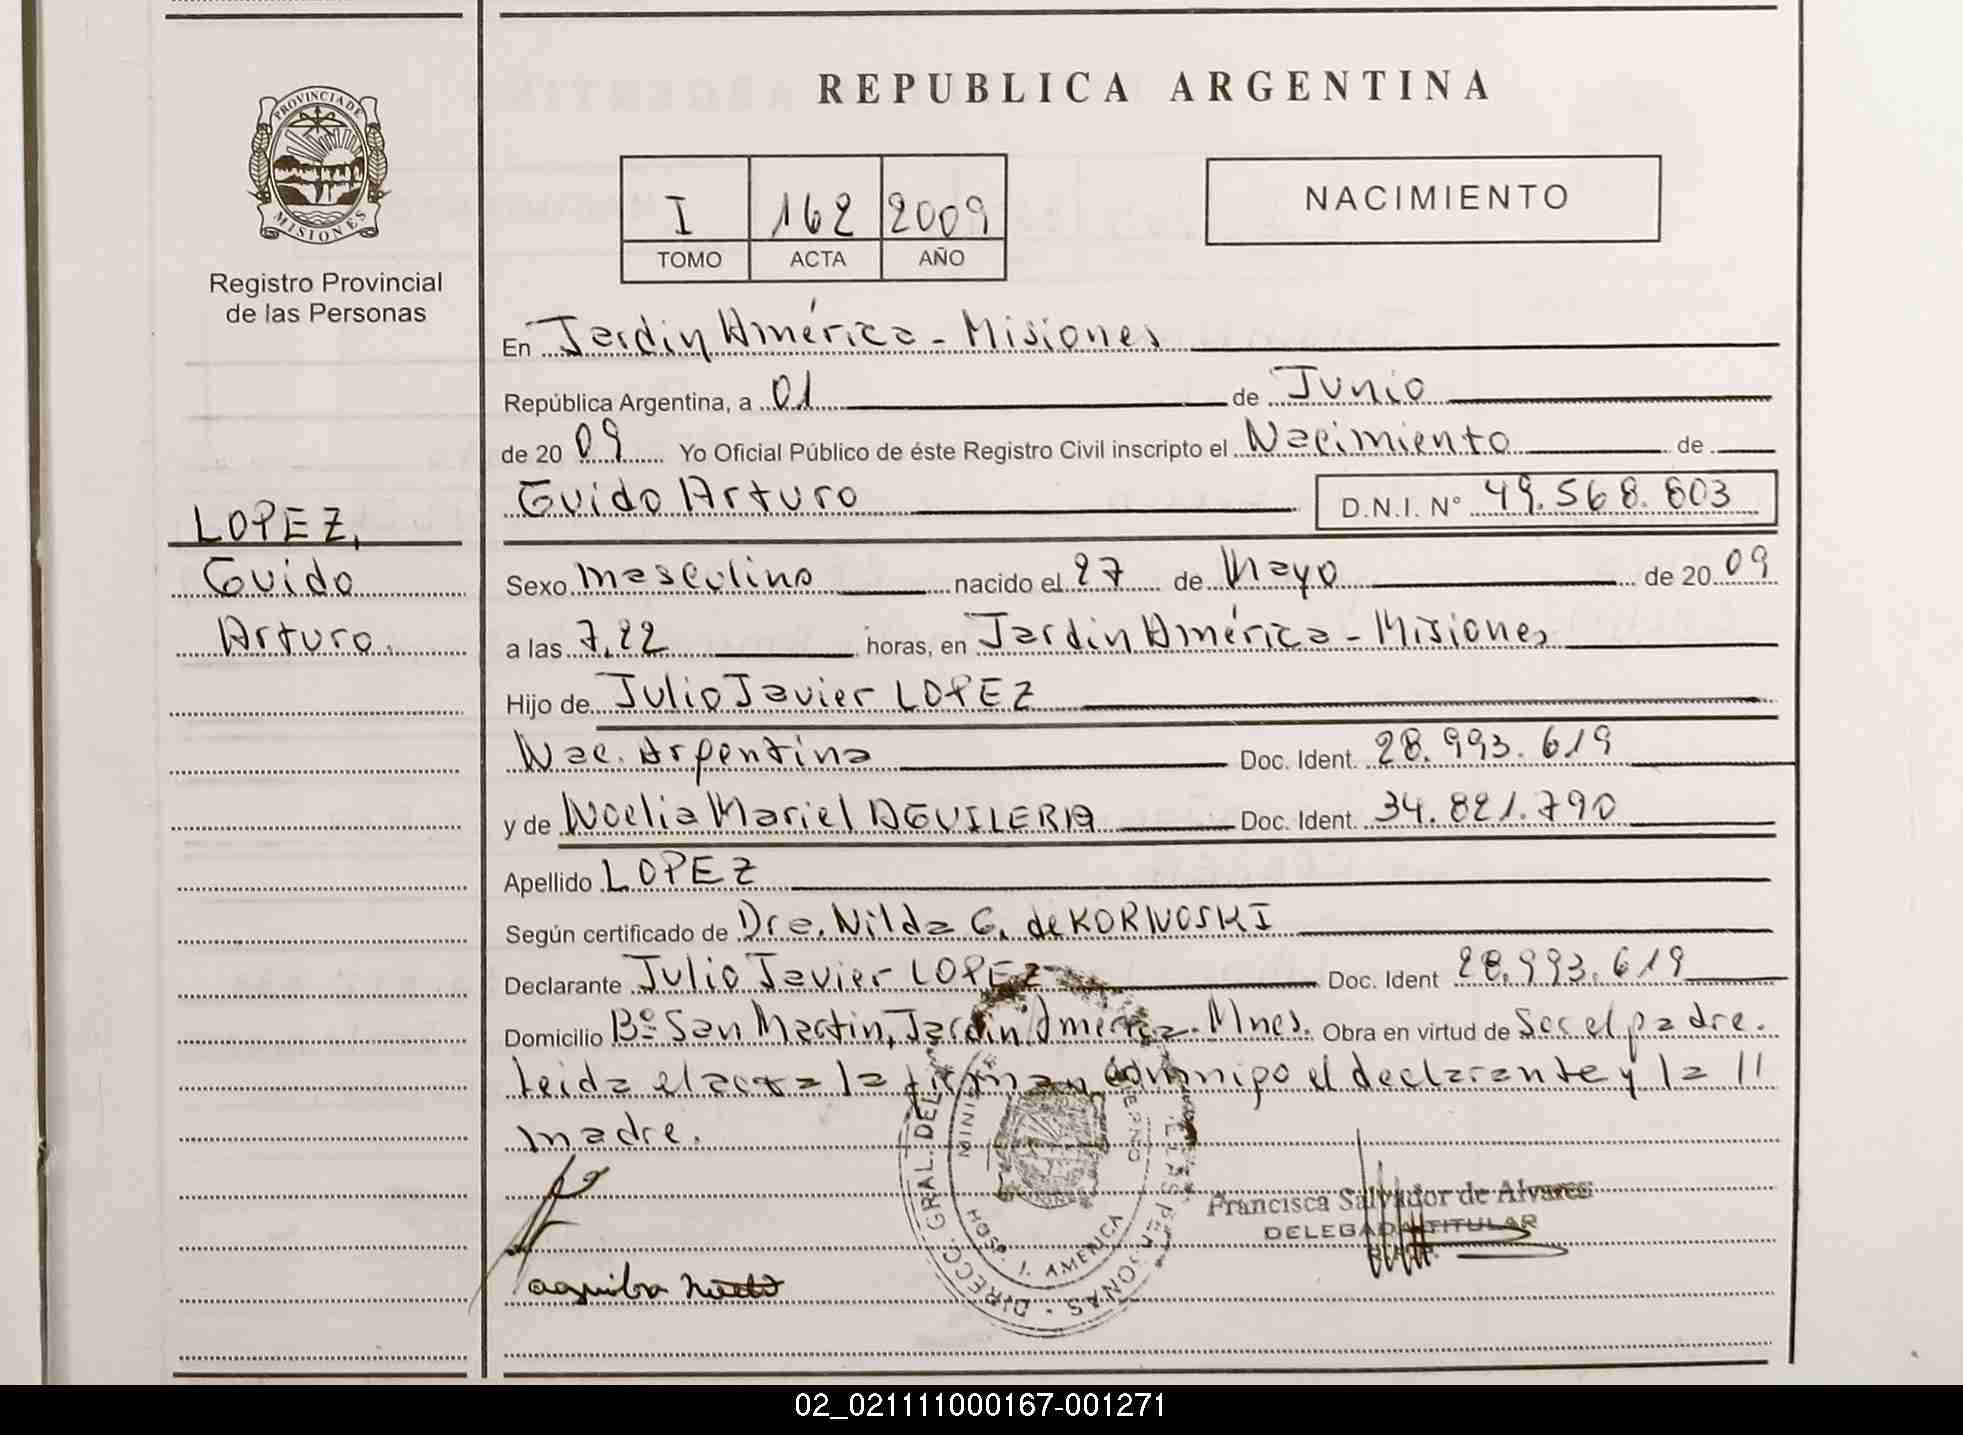 REPUBLICA ARGENTINA
PROVINCIA DE
MISIONES
Registro Provincial
de las Personas
I 162 2009
TOMO ACTA AÑO
NACIMIENTO
LOPEZ,
Guido
Arturo.
En Jardin América - Misiones
República Argentina, a 01 de Junio
de 20 09 Yo Oficial Público de éste Registro Civil inscripto el Nacimiento de
Guido Arturo D.N.I. N° 49.568.803
Sexo masculino nacido el 27 de Mayo de 20 09
a las 7,22 horas, en Jardin América - Misiones
Hijo de Julio Javier LOPEZ
Nac. Argentina Doc. Ident. 28.993.619
y de Noelia Mariel AGUILERA Doc. Ident. 34.821.790
Apellido LOPEZ
Según certificado de Dra. Nilda G. de KORNOSKI
Declarante Julio Javier LOPEZ Doc. Ident 28.993.619
Domicilio B° San Martin, Jardin América. Mnes. Obra en virtud de Ser el padre.
Leida el acta la firman conmigo el declarante y la //
madre.
DIRECC. GRAL. DEL
HOSP. J. AMERICA
Francisca Salvador de Alvarez
DELEGADA TITULAR
02_021111000167-001271